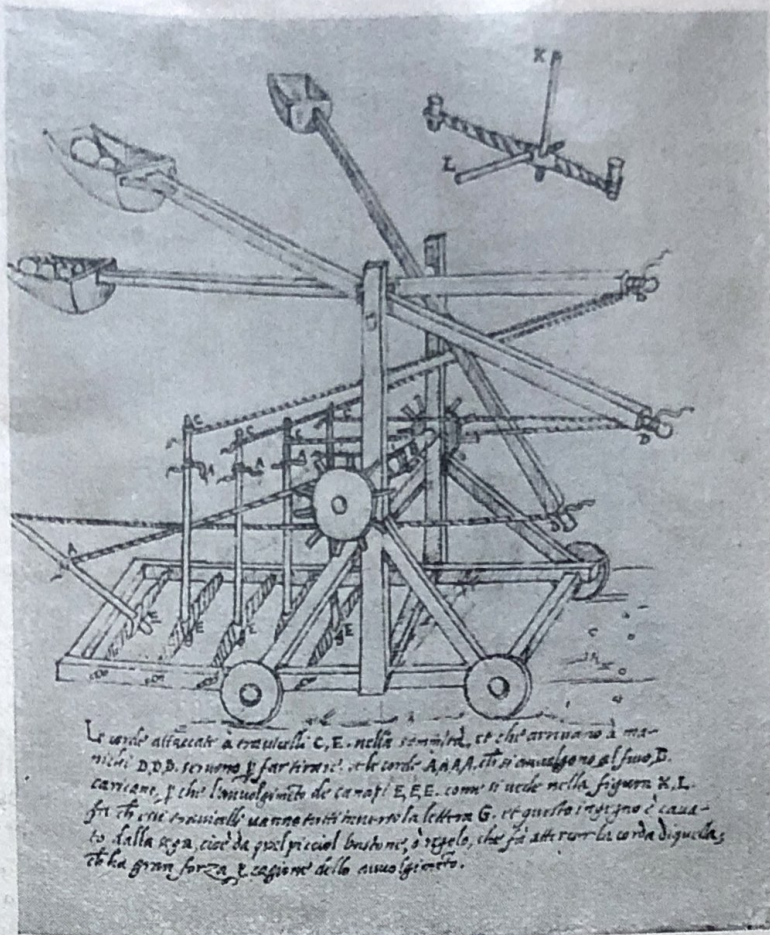 K
L
C
C
C
C
A
A
A
A
D
D
E
E
E
E
Le corde attaccate à travicelli C, E. nella sommità, et che arrivano à ma-
nichi D.D.D. servono p far tirare. et le corde A.A.A.A. ch si avvolgono al fuso B.
caricano, p che l'avvolgimẽto de canapi E.E.E. come si vede nella figura K.L.
fa ch essi travicelli vanno tutti inverso la lettera G. et questo ingegno è cava-
to dalla sega, cioè da quel picciol bastone, ò regolo, che fà attorcer la corda di quella,
ch ha gran forza p cagione dello avvolgimẽto.